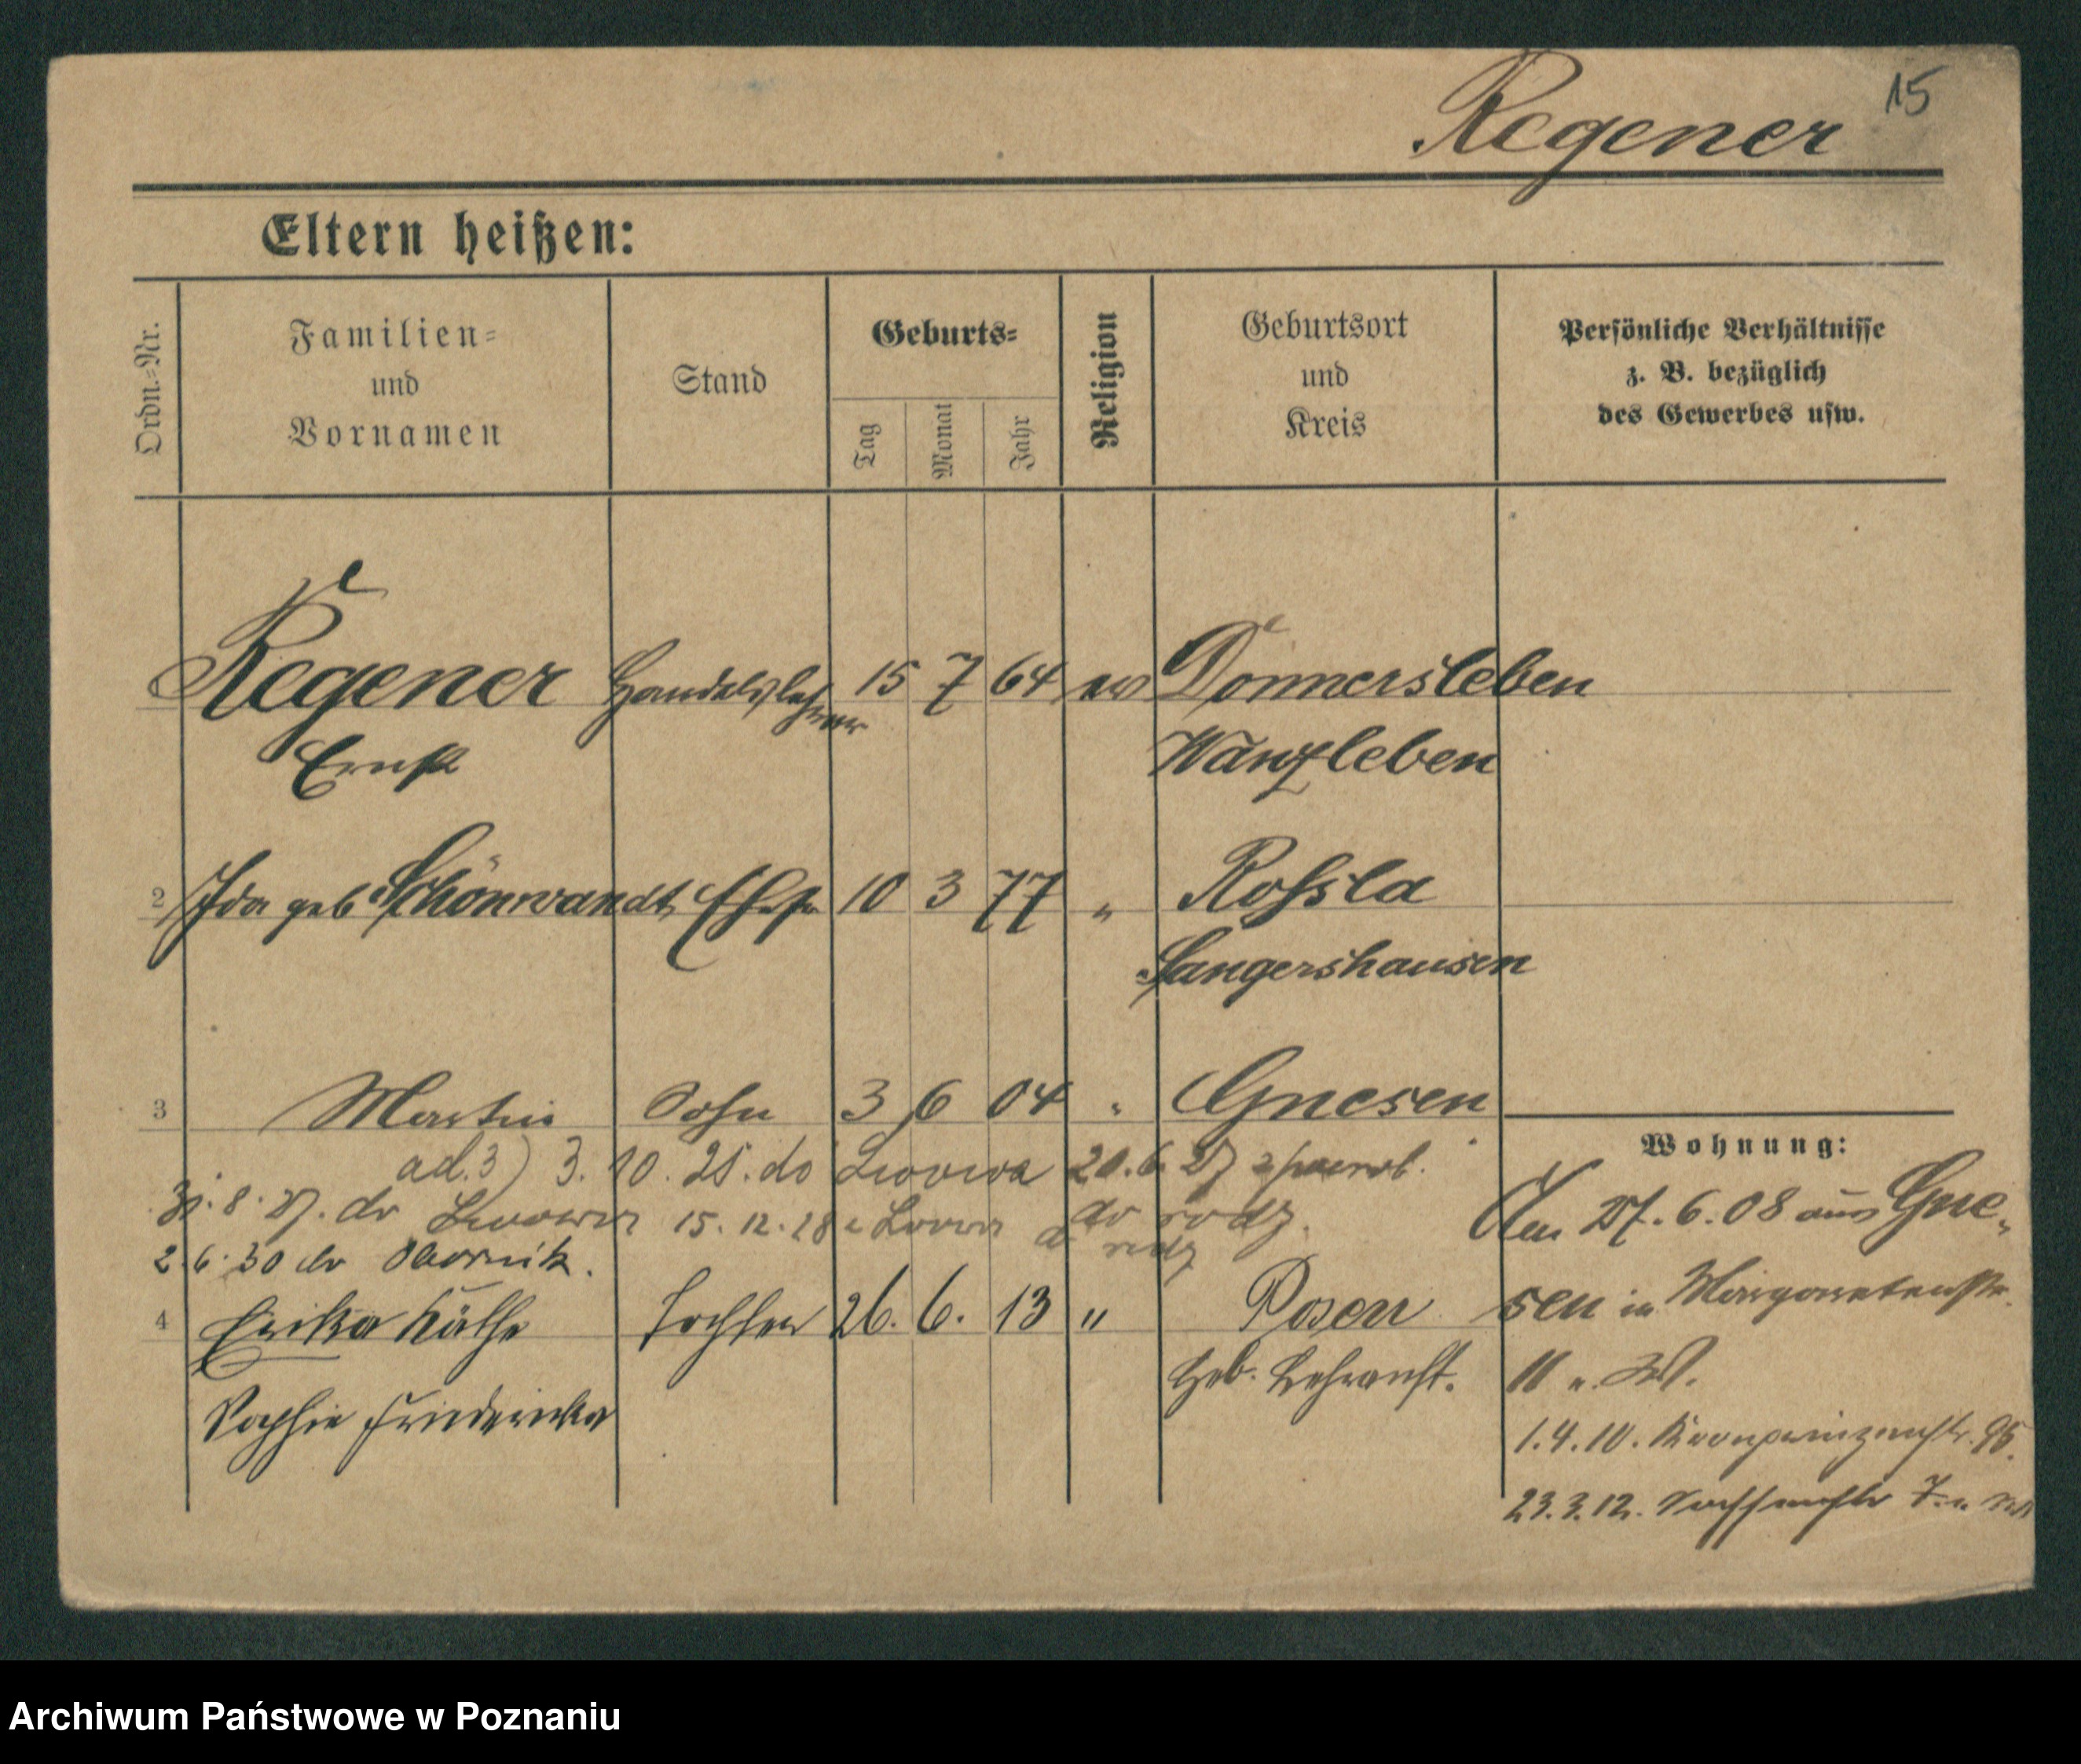 15
Regener
Eltern heißen:
Ordn.-Nr.
Familien-
und
Vornamen
Stand
Geburts-
Tag
Monat
Jahr
Religion
Geburtsort
und
Kreis
Persönliche Verhältnisse
z. B. bezüglich
des Gewerbes usw.
Regener Handelslehrer 15 7 64 ev Donnersleben
Ernst Wanzleben
2 Ida geb Schönwandt Ehefr 10 3 77 " Rossla
Sangershausen
3 Martin Sohn 3 6 04 " Gnesen
ad. 3) 3. 10. 25. do Lwowa 20. 6. 27 z
31. 8. 27. do Lwowa 15. 12. 28 z Lwowa do rodz.
rodz
2 6. 30 do Obornik.
4 Erika Käthe Tochter 26. 6. 13 " Posen
Sophie Friederike Heb. Lehranst.
Wohnung:
Am 27. 6. 08 aus Gne-
sen in Margaretenstr.
11
1. 4. 10. Kronprinzenstr. 95.
23. 3. 12. 7.
Archiwum Państwowe w Poznaniu